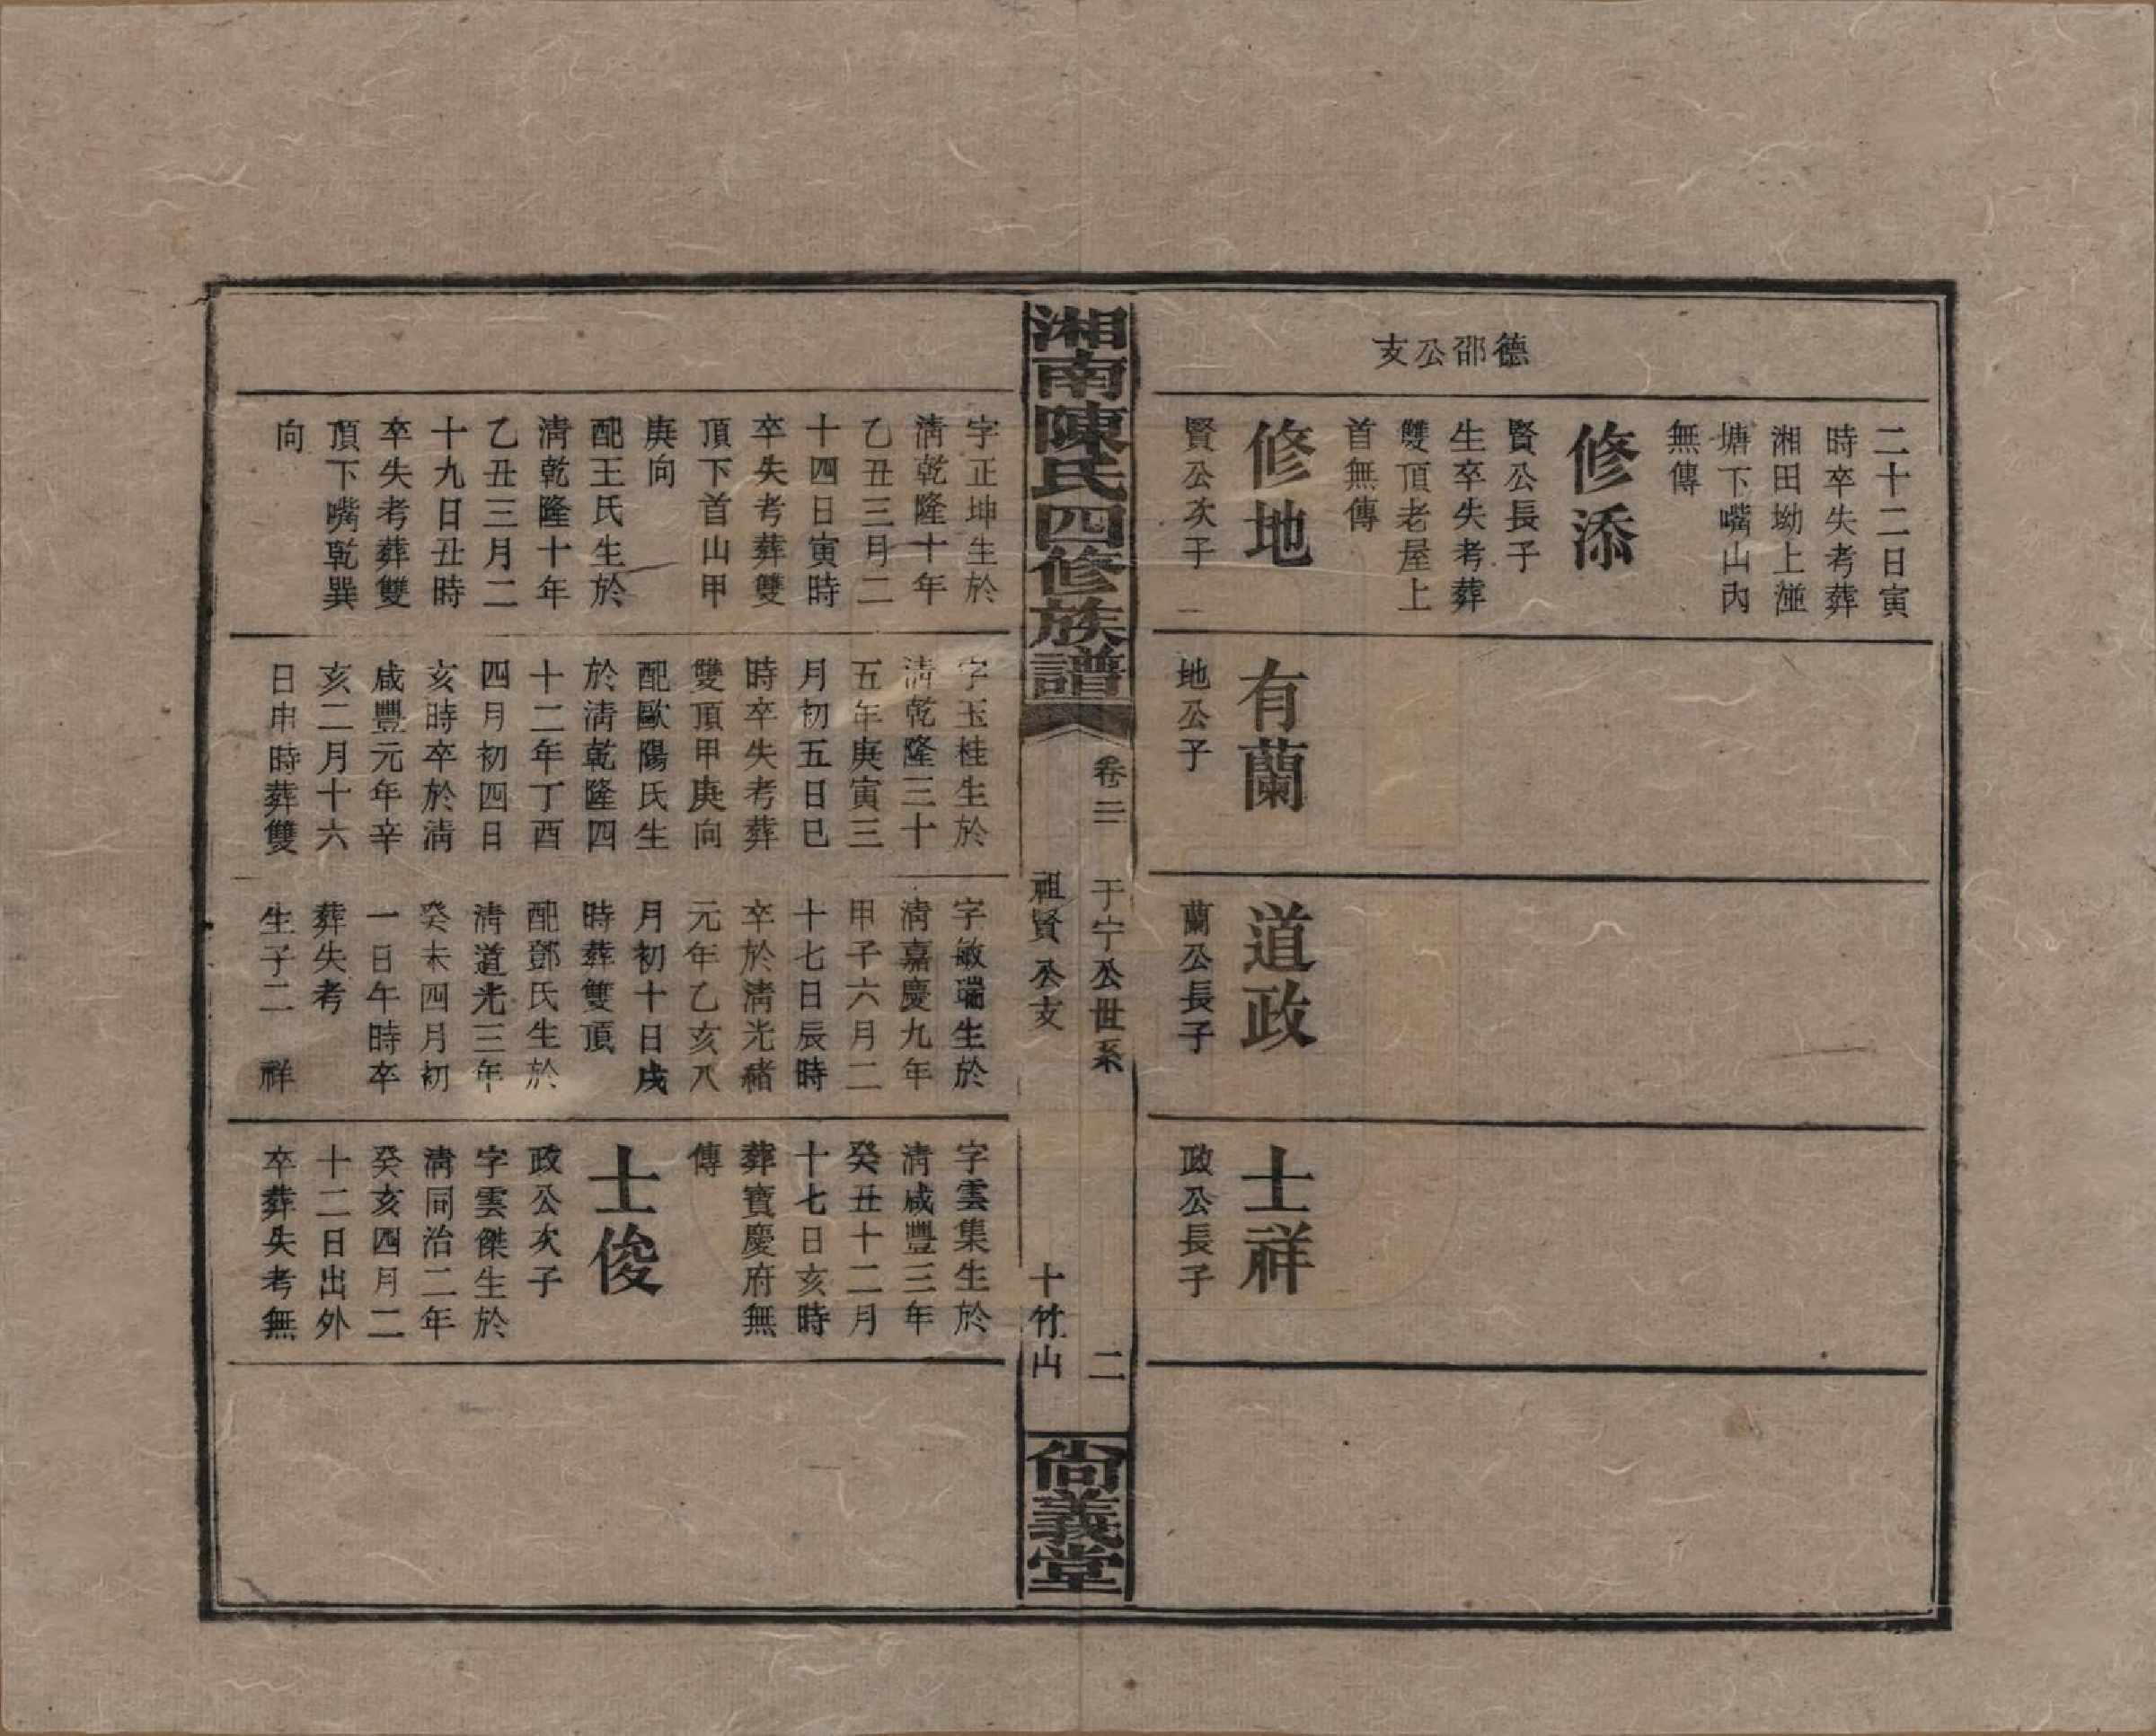 德邵公支
二十二日寅
時卒失考葬
湘田坳上𣸣
塘下嘴山內
無傳
修添
賢公長子
生卒失考葬
雙頂老屋上
首無傳
修地
賢公次子
有蘭
地公子
道政
蘭公長子
士祥
政公長子
湘南陳氏四修族譜
卷三
于宁公世系
祖賢公支
二
十竹山
尙義堂
字正坤生於
淸乾隆十年
乙丑三月二
十四日寅時
卒失考葬雙
頂下首山甲
庚向
配王氏生於
淸乾隆十年
乙丑三月二
十九日丑時
卒失考葬雙
頂下嘴乾巽
向
字玉桂生於
淸乾隆三十
五年庚寅三
月初五日巳
時卒失考葬
雙頂甲庚向
配歐陽氏生
於淸乾隆四
十二年丁酉
四月初四日
亥時卒於淸
咸豐元年辛
亥二月十六
日申時葬雙
字敏瑞生於
淸嘉慶九年
甲子六月二
十七日辰時
卒於淸光緒
元年乙亥八
月初十日戌
時葬雙頂
配鄧氏生於
淸道光三年
癸未四月初
一日午時卒
葬失考
生子二 祥
字雲集生於
淸咸豐三年
癸丑十二月
十七日亥時
葬寶慶府無
傳
士俊
政公次子
字雲傑生於
淸同治二年
癸亥四月二
十二日出外
卒葬失考無